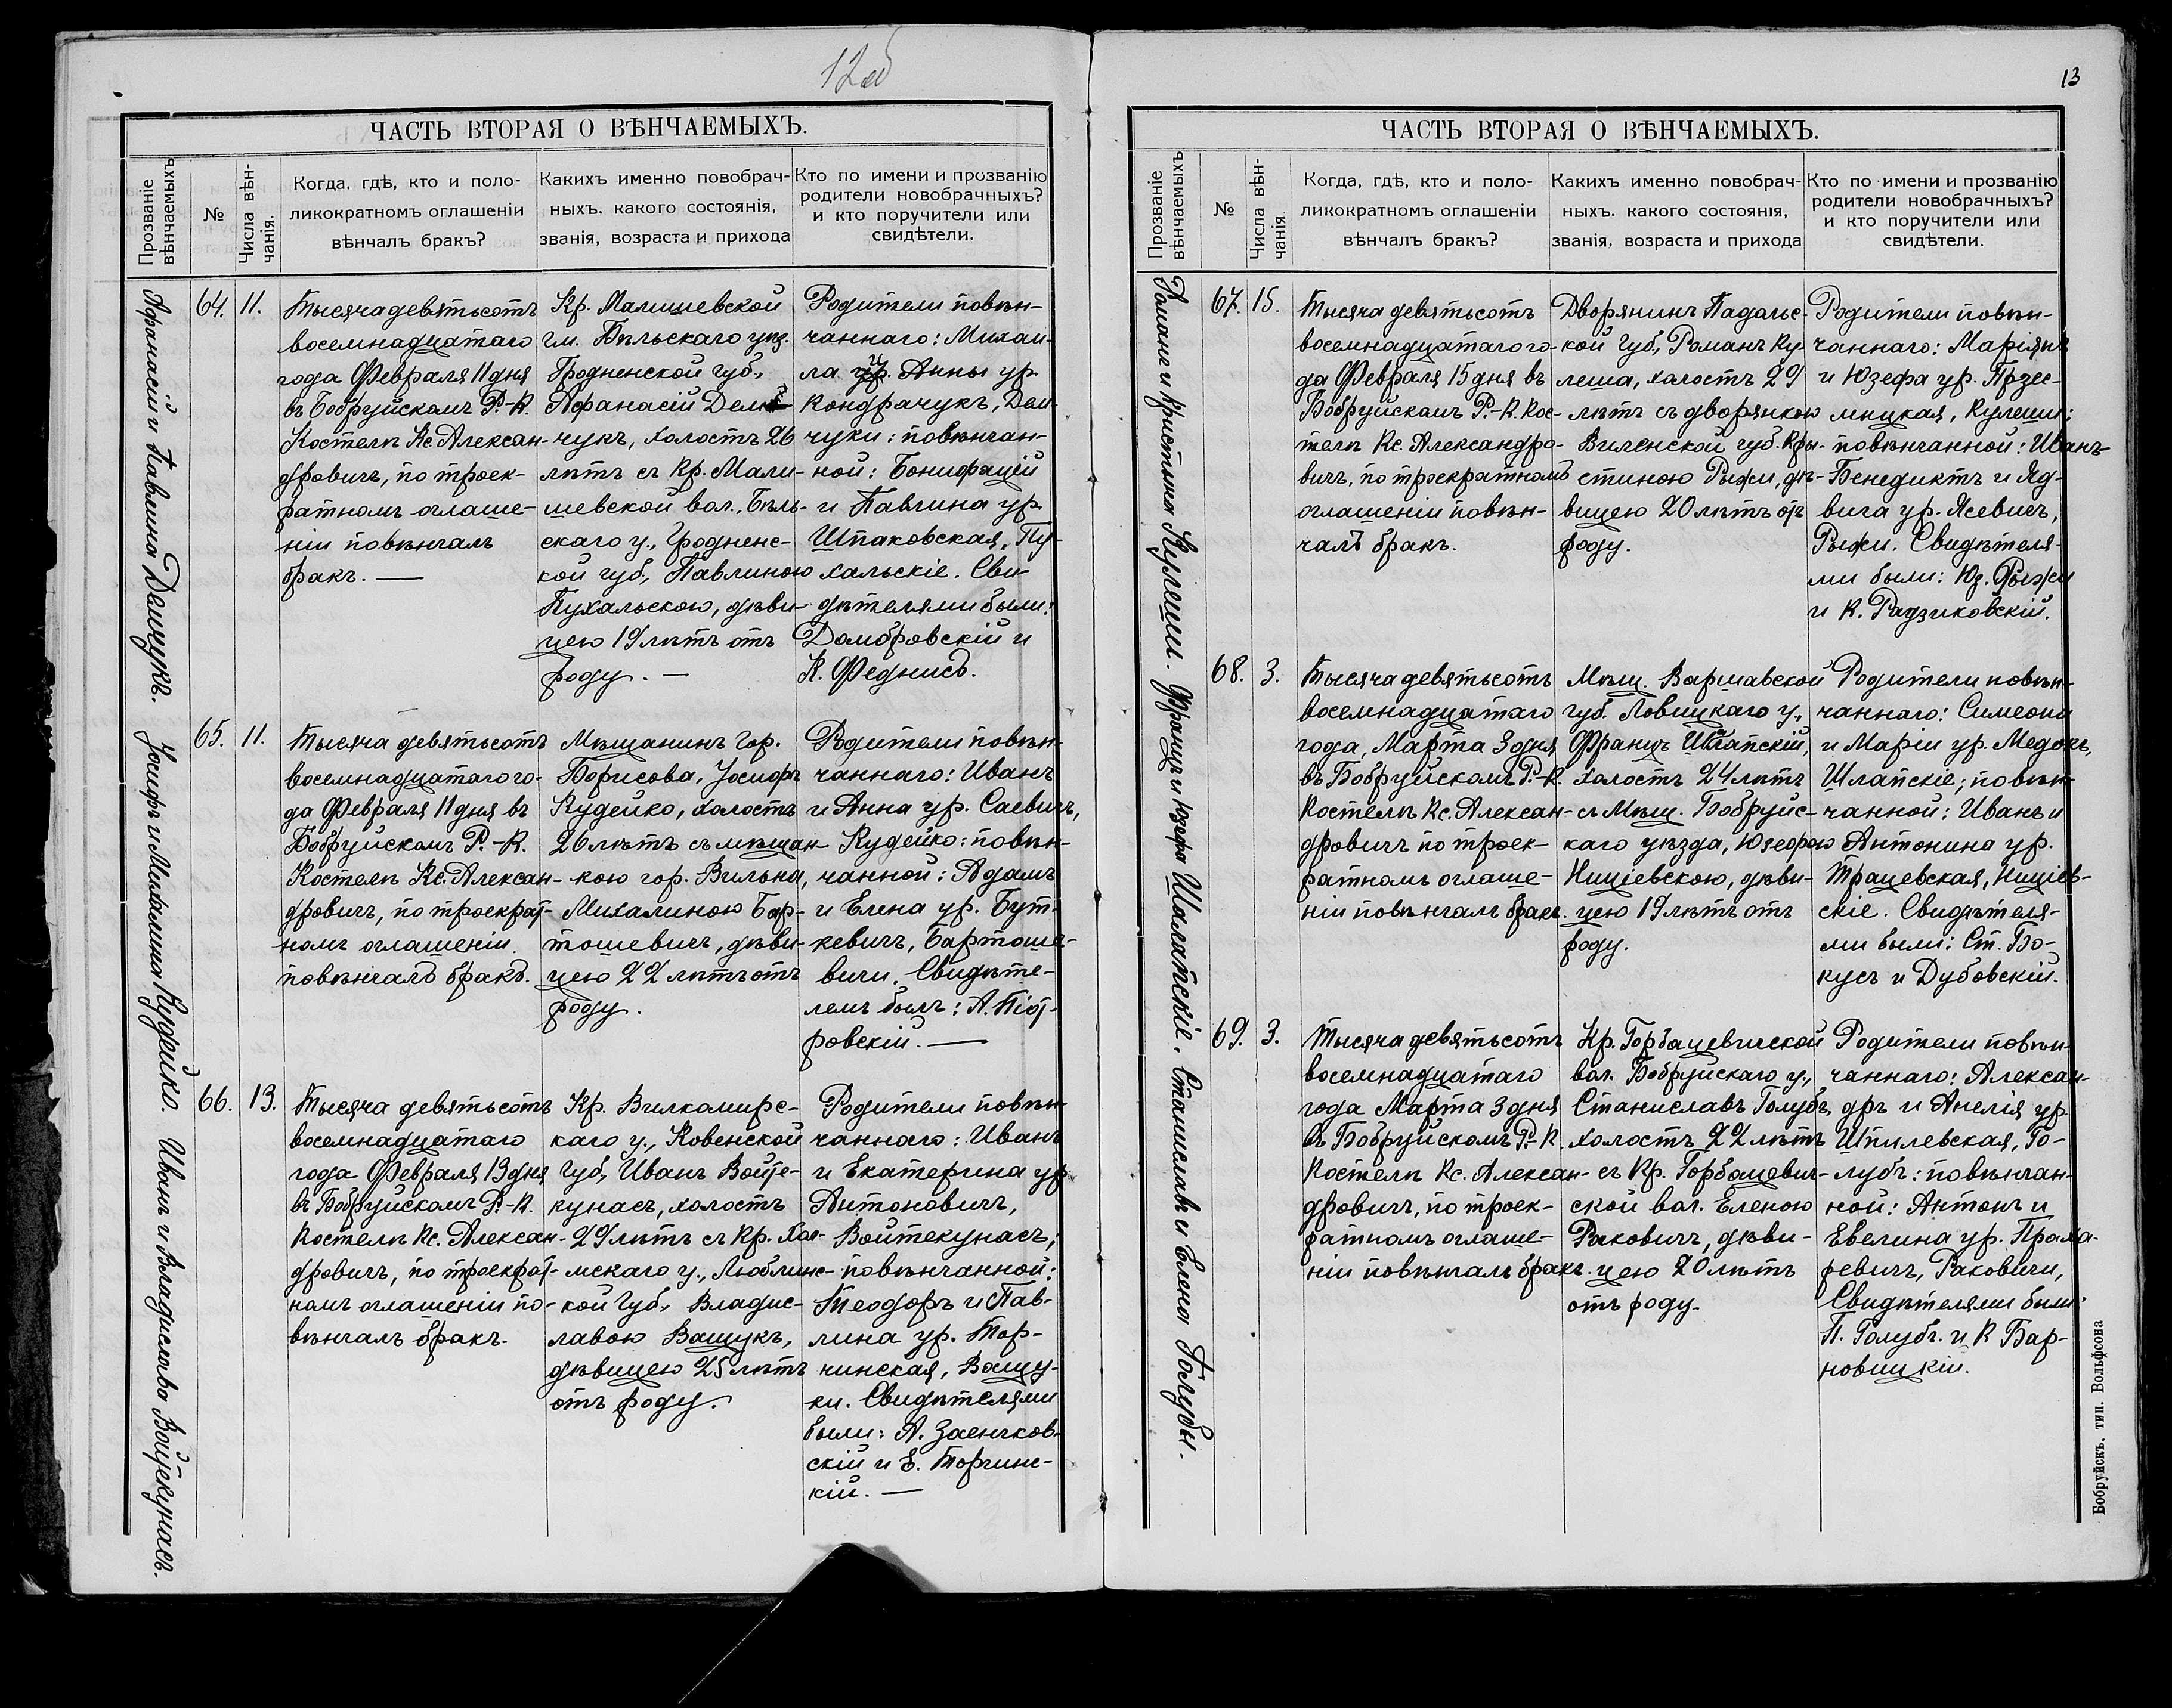 12об
ЧАСТЬ ВТОРАЯ О ВѢНЧАЕМЫХЪ.
Прозваніе
вѣнчаемыхъ
№
Числа вѣн-
чанія.
Когда, гдѣ, кто и поло-
ликократномъ оглашеніи
вѣнчалъ бракъ?
Какихъ именно повобрач-
ныхъ. какого состоянія,
званія, возраста и прихода
Кто по имени и прозванію
родители новобрачныхъ?
и кто поручители или
свидѣтели.
Афанасій и Павлина Демчукъ.
64. 11.
Тысяча девятьсотъ
восемнадцатаго
года Февраля 11 дня
въ Бобруйскомъ Р.-К.
Костелѣ Кс. Алексан-
дровичъ, по троек-
ратномъ оглаше-
ніи повѣнчалъ
бракъ. —
Кр. Малишевской
гм. Бѣльскаго уѣз.
Гродненской губ.,
Афанасій Дем-
чукъ, холостъ 26
лѣтъ съ кр. Мали-
шевской вол., Бѣль-
скаго у., Гродненс-
кой губ., Павлиною
Пухальскою, дѣви-
цею 19 лѣтъ отъ
роду. —
Родители повѣн-
чаннаго: Михаи-
ла и Анны ур.
Кондрачукъ, Дем-
чуки: повѣнчан-
ной: Бонифацій
и Павлина ур.
Шпаковская, Пу-
хальскіе. Сви-
дѣтелями были:
Домбровскій и
К. Феднисъ.
Іосифъ и Михалина Кудейко.
65. 11.
Тысяча девятьсотъ
восемнадцатаго го-
да Февраля 11 дня въ
Бобруйскомъ Р.-К.
Костелѣ Кс. Алексан-
дровичъ, по троекрат-
номъ оглашеніи
повѣнчалъ бракъ.
Мѣщанинъ гор.
Борисова, Іосифъ
Кудейко, холостъ
26 лѣтъ съ мѣщан-
кою гор. Вильна,
Михалиною Бар-
тошевичъ, дѣви-
цею 22 лѣтъ отъ
роду.
Родители повѣн-
чаннаго: Иванъ
и Анна ур. Саевичъ,
Кудейко: повѣн-
чанной: Адамъ
и Елена ур. Бут-
кевичъ, Бартоше-
вичи. Свидѣте-
лемъ былъ: А. Піот-
ровскій. —
Иванъ и Владислава Войтекунасъ.
66. 13.
Тысяча девятьсотъ
восемнадцатаго
года Февраля 13 дня
въ Бобруйскомъ Р.-К.
Костелѣ Кс. Алексан-
дровичъ, по троекрат-
номъ оглашеніи по-
вѣнчалъ бракъ.
Кр. Вилкомирс-
каго у., Ковенской
губ., Иванъ Войте-
кунасъ, холостъ
29 лѣтъ съ кр. Хол-
мскаго у., Люблинс-
кой губ., Владис-
лавою Ващукъ,
дѣвицею 25 лѣтъ
отъ роду.
Родители повѣн-
чаннаго: Иванъ
и Екатерина ур.
Антоновичъ,
Войтекунасъ;
повѣнчанной:
Теодоръ и Пав-
лина ур. Тор-
чинская, Ващу-
ки. Свидѣтелями
были: А. Заенчков-
скій и Е. Торчинс-
кій. —
13
ЧАСТЬ ВТОРАЯ О ВѢНЧАЕМЫХЪ.
Прозваніе
вѣнчаемыхъ
№
Числа вѣн-
чанія
Когда, гдѣ, кто и поло-
ликократномъ оглашеніи
вѣнчалъ бракъ?
Какихъ именно повобрач-
ныхъ. какого состоянія,
званія, возраста и прихода
Кто по имени и прозванію
родители новобрачныхъ?
и кто поручители или
свидѣтели.
Романъ и Кристина Кулеши.
67. 15.
Тысяча девятьсотъ
восемнадцатаго го-
да Февраля 15 дня въ
Бобруйскомъ Р.-К. Кос-
телѣ Кс. Александро-
вичъ, по троекратномъ
оглашеніи повѣн-
чалъ бракъ.
Дворянинъ Падольс-
кой губ., Романъ Ку-
леша, холостъ 29
лѣтъ съ дворянкою
Виленской губ. Кры-
стиною Рыжи, дѣ-
вицею 20 лѣтъ отъ
роду.
Родители повѣн-
чаннаго: Маріянъ
и Юзефа ур. Прзес-
мыцкая, Кулеши;
повѣнчанной: Иванъ-
Бенедиктъ и Яд-
вига ур. Ясевичъ,
Рыжи. Свидѣтеля-
ми были: Юз. Рыжи
и К. Радзиковскій.
Францъ и Юзефа Шлапскіе.
68. 3.
Тысяча девятьсотъ
восемнадцатаго
года, Марта 3 дня
въ Бобруйскомъ Р.-К.
Костелѣ Кс. Алексан-
дровичъ по троек-
ратномъ оглаше-
ніи повѣнчалъ бракъ.
Мѣщ. Варшавской
губ. Ловицкаго у.,
Францъ Шлапскій,
холостъ 24 лѣтъ
съ Мѣщ. Бобруйс-
каго уѣзда, Юзефою
Ниціевскою, дѣви-
цею 19 лѣтъ отъ
роду.
Родители повѣн-
чаннаго: Симеона
и Маріи ур. Медокъ,
Шлапскіе; повѣн-
чанной: Иванъ и
Антонина ур.
Трацевская, Ниціев-
скіе. Свидѣтеля-
ми были: Ст. Бо-
кусъ и Дубовскій.
Станиславъ и Елена Голубы.
69. 3.
Тысяча девятьсотъ
восемнадцатаго
года Марта 3 дня
въ Бобруйскомъ Р.-К.
Костелѣ Кс. Алексан-
дровичъ, по троек-
ратномъ оглаше-
ніи повѣнчалъ бракъ.
Кр. Горбацевичской
вол. Бобруйскаго у.,
Станиславъ Голубъ,
холостъ 22 лѣтъ
съ Кр. Горбацевич-
ской вол. Еленою
Раковичъ, дѣви-
цею 20 лѣтъ
отъ роду.
Родители повѣн-
чаннаго: Алексан-
дръ и Анелія ур.
Шпилевская, Го-
лубъ: повѣнчан-
ной: Антонъ и
Евелина ур. Проха-
ревичъ, Раковичи,
Свидѣтелями были:
П. Голубъ. и К Бар-
новицкій.
Бобруйскъ. тип. Вольфсона